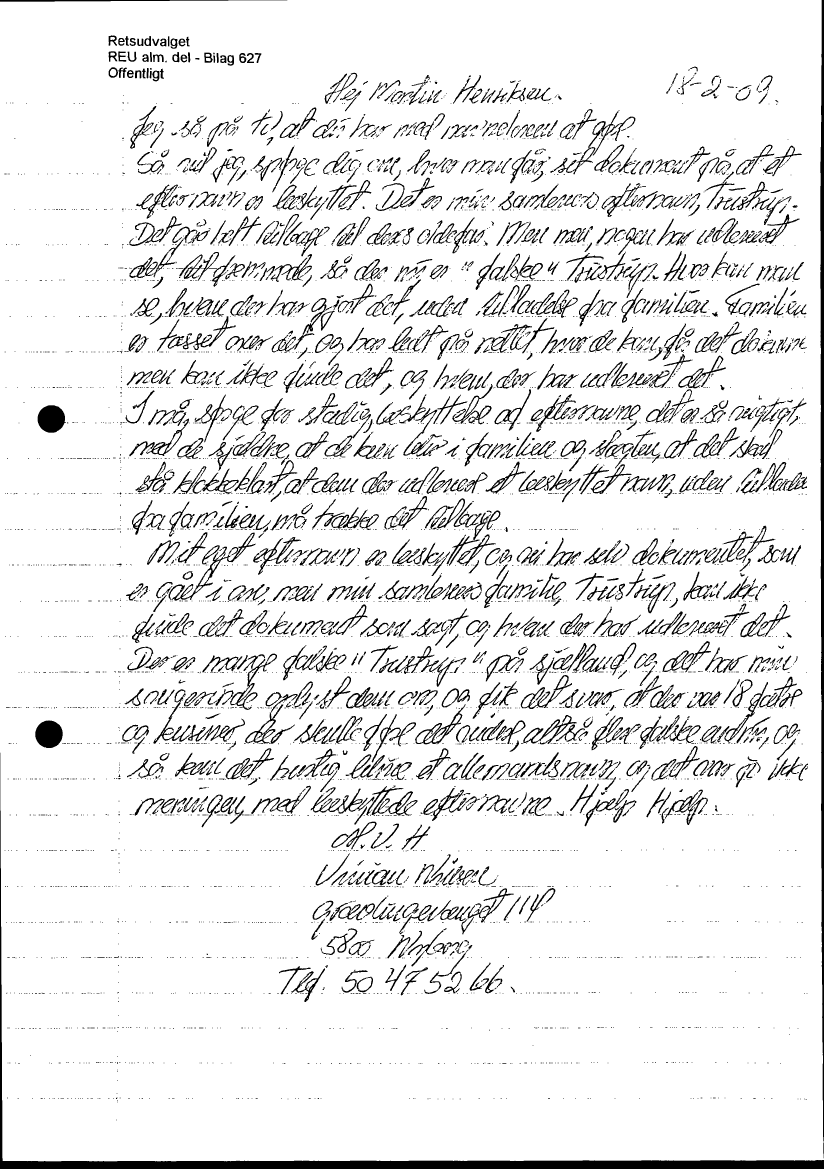 Retsudvalget
REU alm. del - Bilag 627
Offentligt
Hej Martin Henriksen. 18-2-09.
Jeg så på tv, at du har med navneloven at gøre.
Så vil jeg, spørge dig om, hvor man får, sit dokument på, at et
efternavn er beskyttet. Det er min samlevers efternavn, Trustrup.
Det går helt tilbage til deres oldefar. Men men, nogen har udleveret
det, til fremmede, så der nu er "falske" Trustrup. Hvor kan man
se, hvem der har gjort det, uden tilladelse fra familien. Familien
er tosset over det, og har ledt på nettet, hvor de kan, få det dokum
men kan ikke finde det, og hvem, der har udleveret det.
I må, sørge for stadig, beskyttelse af efternavne, det er så vigtigt,
med de sjældne, at de kun bliv i familien og slægten, at det skal
stå klokkeklart, at dem der udleverer et beskyttet navn, uden tilladel
fra familien, må trække det tilbage.
Mit eget efternavn er beskyttet, og vi har selv dokumentet, som
er gået i arv, men min samlevers familie, Trustrup, kan ikke
finde det dokument som sagt, og hvem der har udleveret det.
Der er mange falske "Trustrup" på sjælland, og det har min
svigerinde oplyst dem om, og fik det svar, at der var 18 fætre
og kusiner, der skulle føre det videre, altså flere falske endnu, og
så kan det, hurtig blive et allemandsnavn, og det var jo ikke
meningen, med beskyttede efternavne. Hjælp Hjælp.
M.V.H
Vivian
114
5800 Nyborg
Tlf. 50 47 52 66.